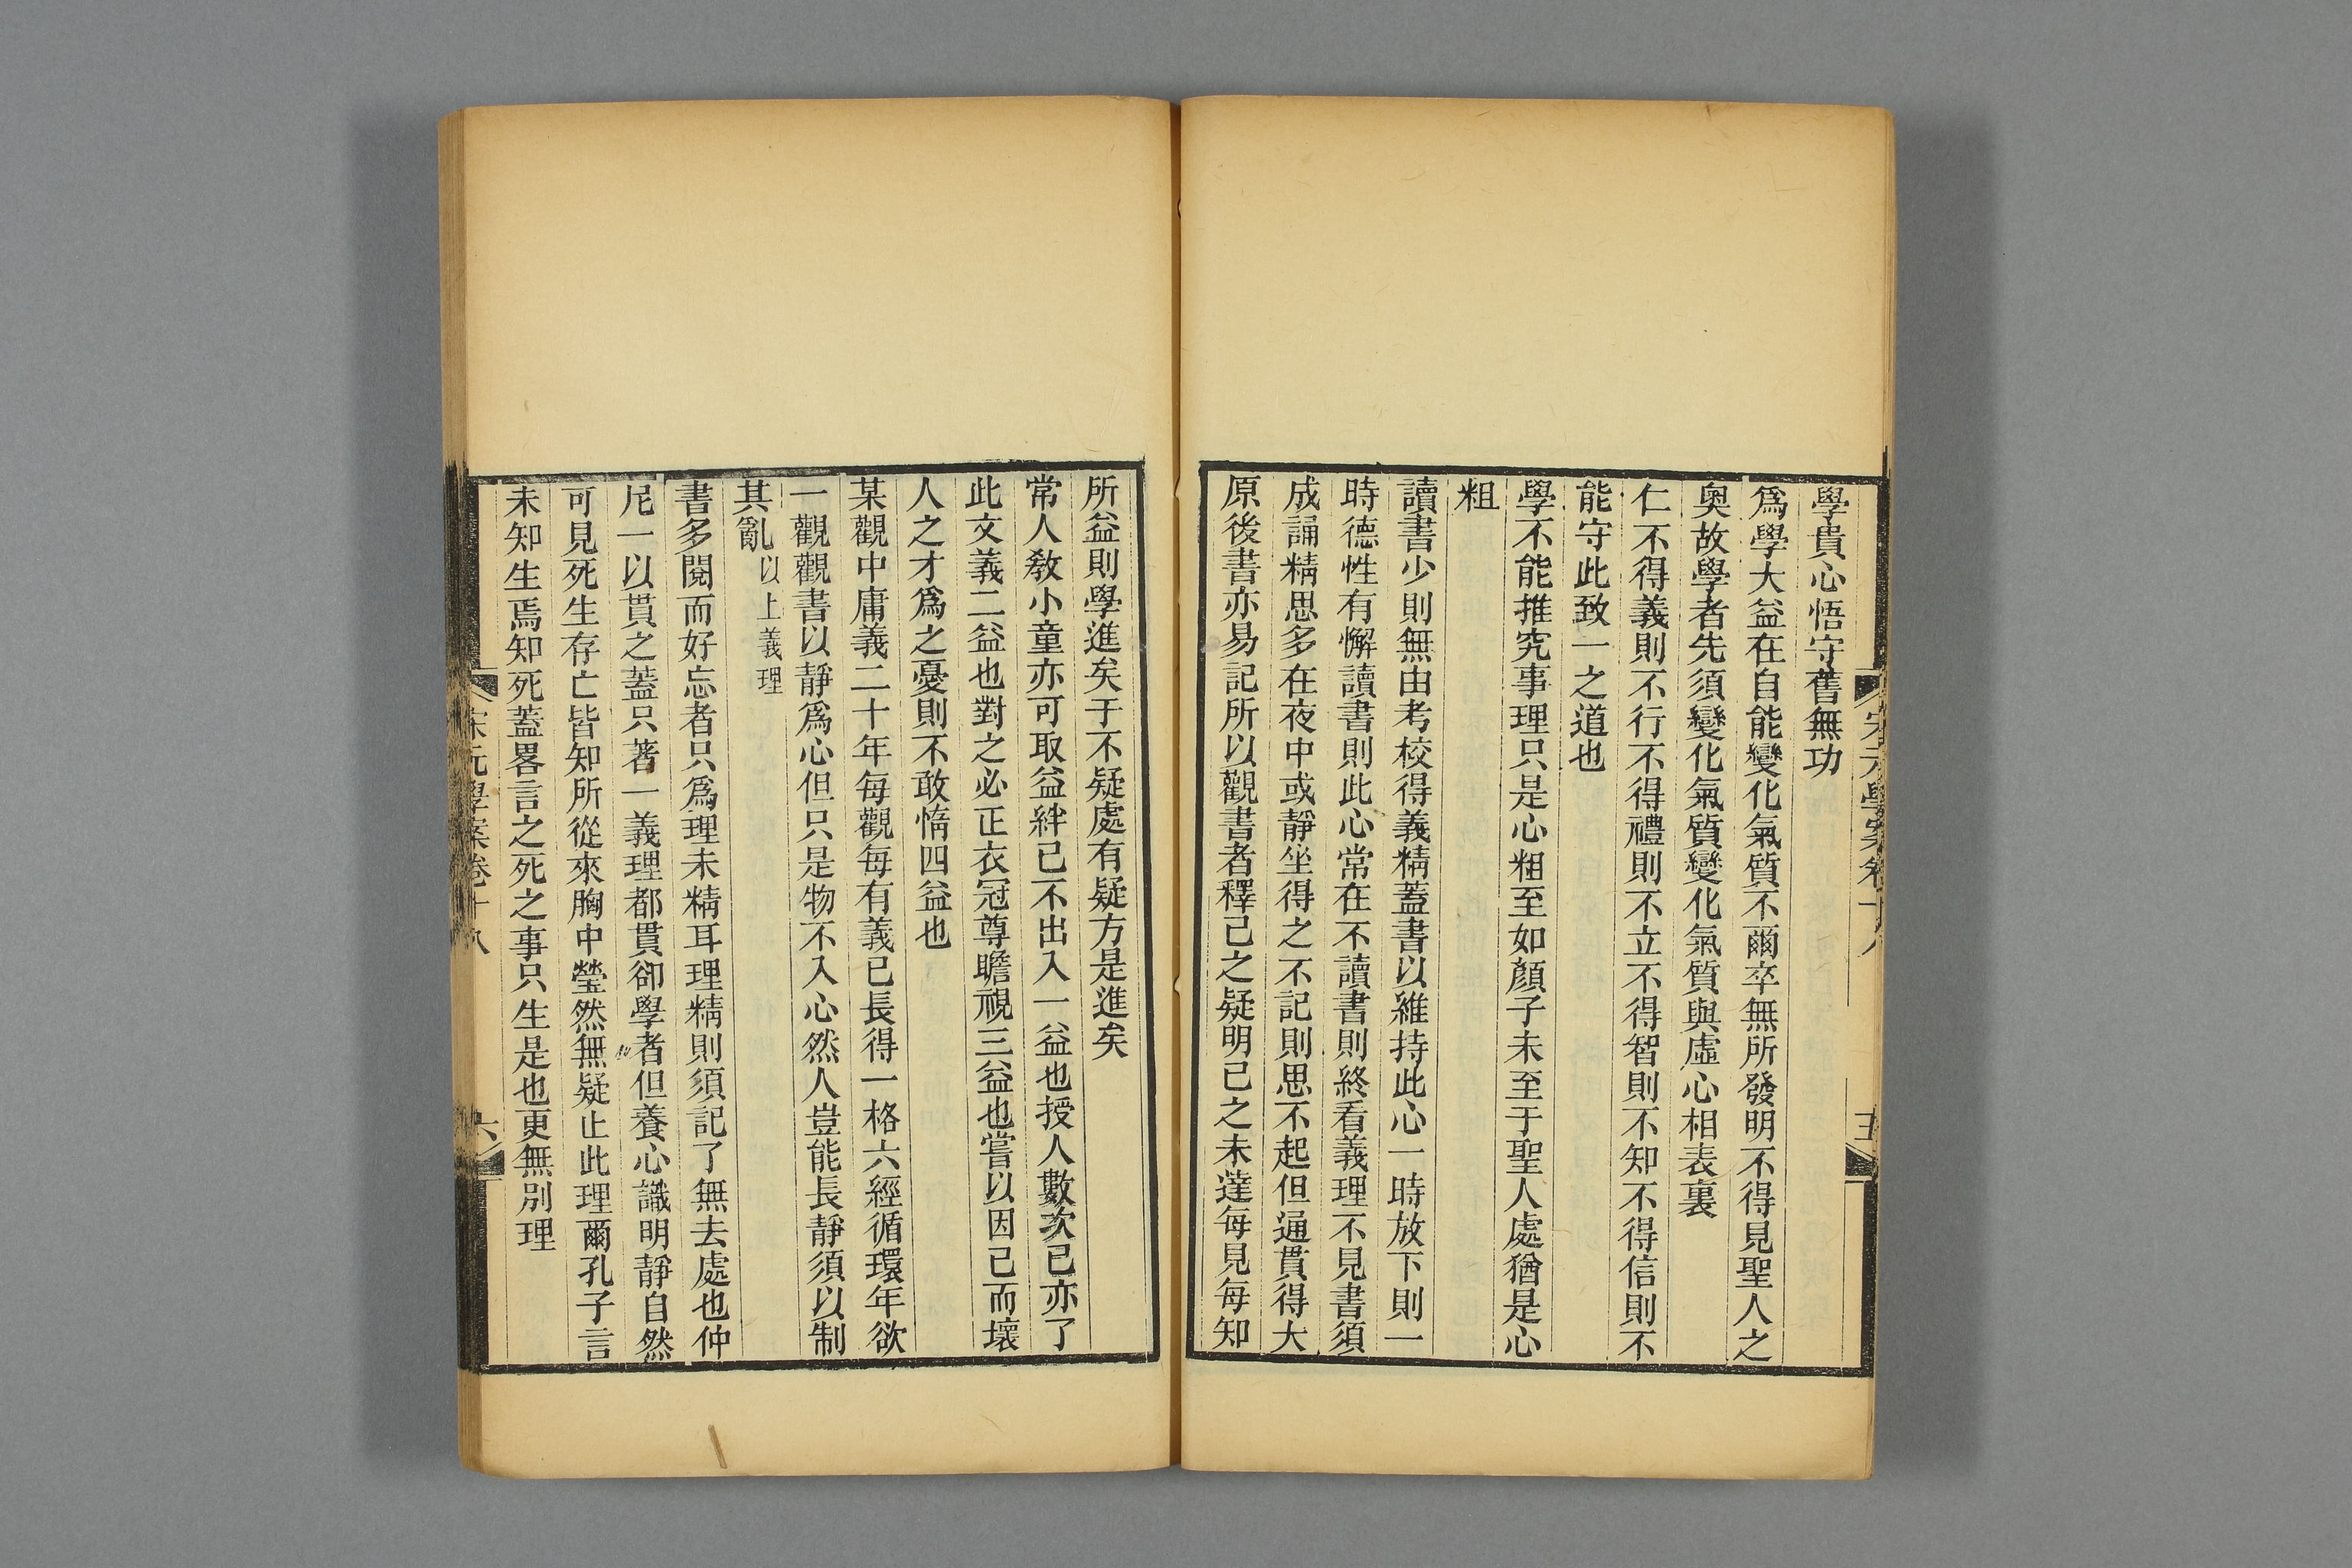 學貴心悟守舊無功
爲學大益在自能變化氣質不爾卒無所發明不得見聖人之
奧故學者先須變化氣質變化氣質與虛心相表裏
仁不得義則不行不得禮則不立不得智則不知不得信則不
能守此致一之道也
學不能推究事理只是心粗至如顏子未至于聖人處猶是心
粗
讀書少則無由考校得義精蓋書以維持此心一時放下則一
時德性有懈讀書則此心常在不讀書則終看義理不見書須
成誦精思多在夜中或靜坐得之不記則思不起但通貫得大
原後書亦易記所以觀書者釋己之疑明己之未達每見每知
所益則學進矣于不疑處有疑方是進矣
常人敎小童亦可取益絆已不出入一益也授人數次已亦了
此文義二益也對之必正衣冠尊瞻視三益也嘗以因已而壞
人之才爲之憂則不敢惰四益也
某觀中庸義二十年每觀每有義已長得一格六經循環年欲
一觀觀書以靜爲心但只是物不入心然人豈能長靜須以制
其亂以上義理
書多閱而好忘者只爲理未精耳理精則須記了無去處也仲
尼一以貫之蓋只著一義理都貫卻學者但養心識明靜自然
可見死生存亡皆知所從來胸中瑩然無疑止此理爾孔子言
未知生焉知死蓋畧言之死之事只生是也更無別理
宋元學案卷十八
六